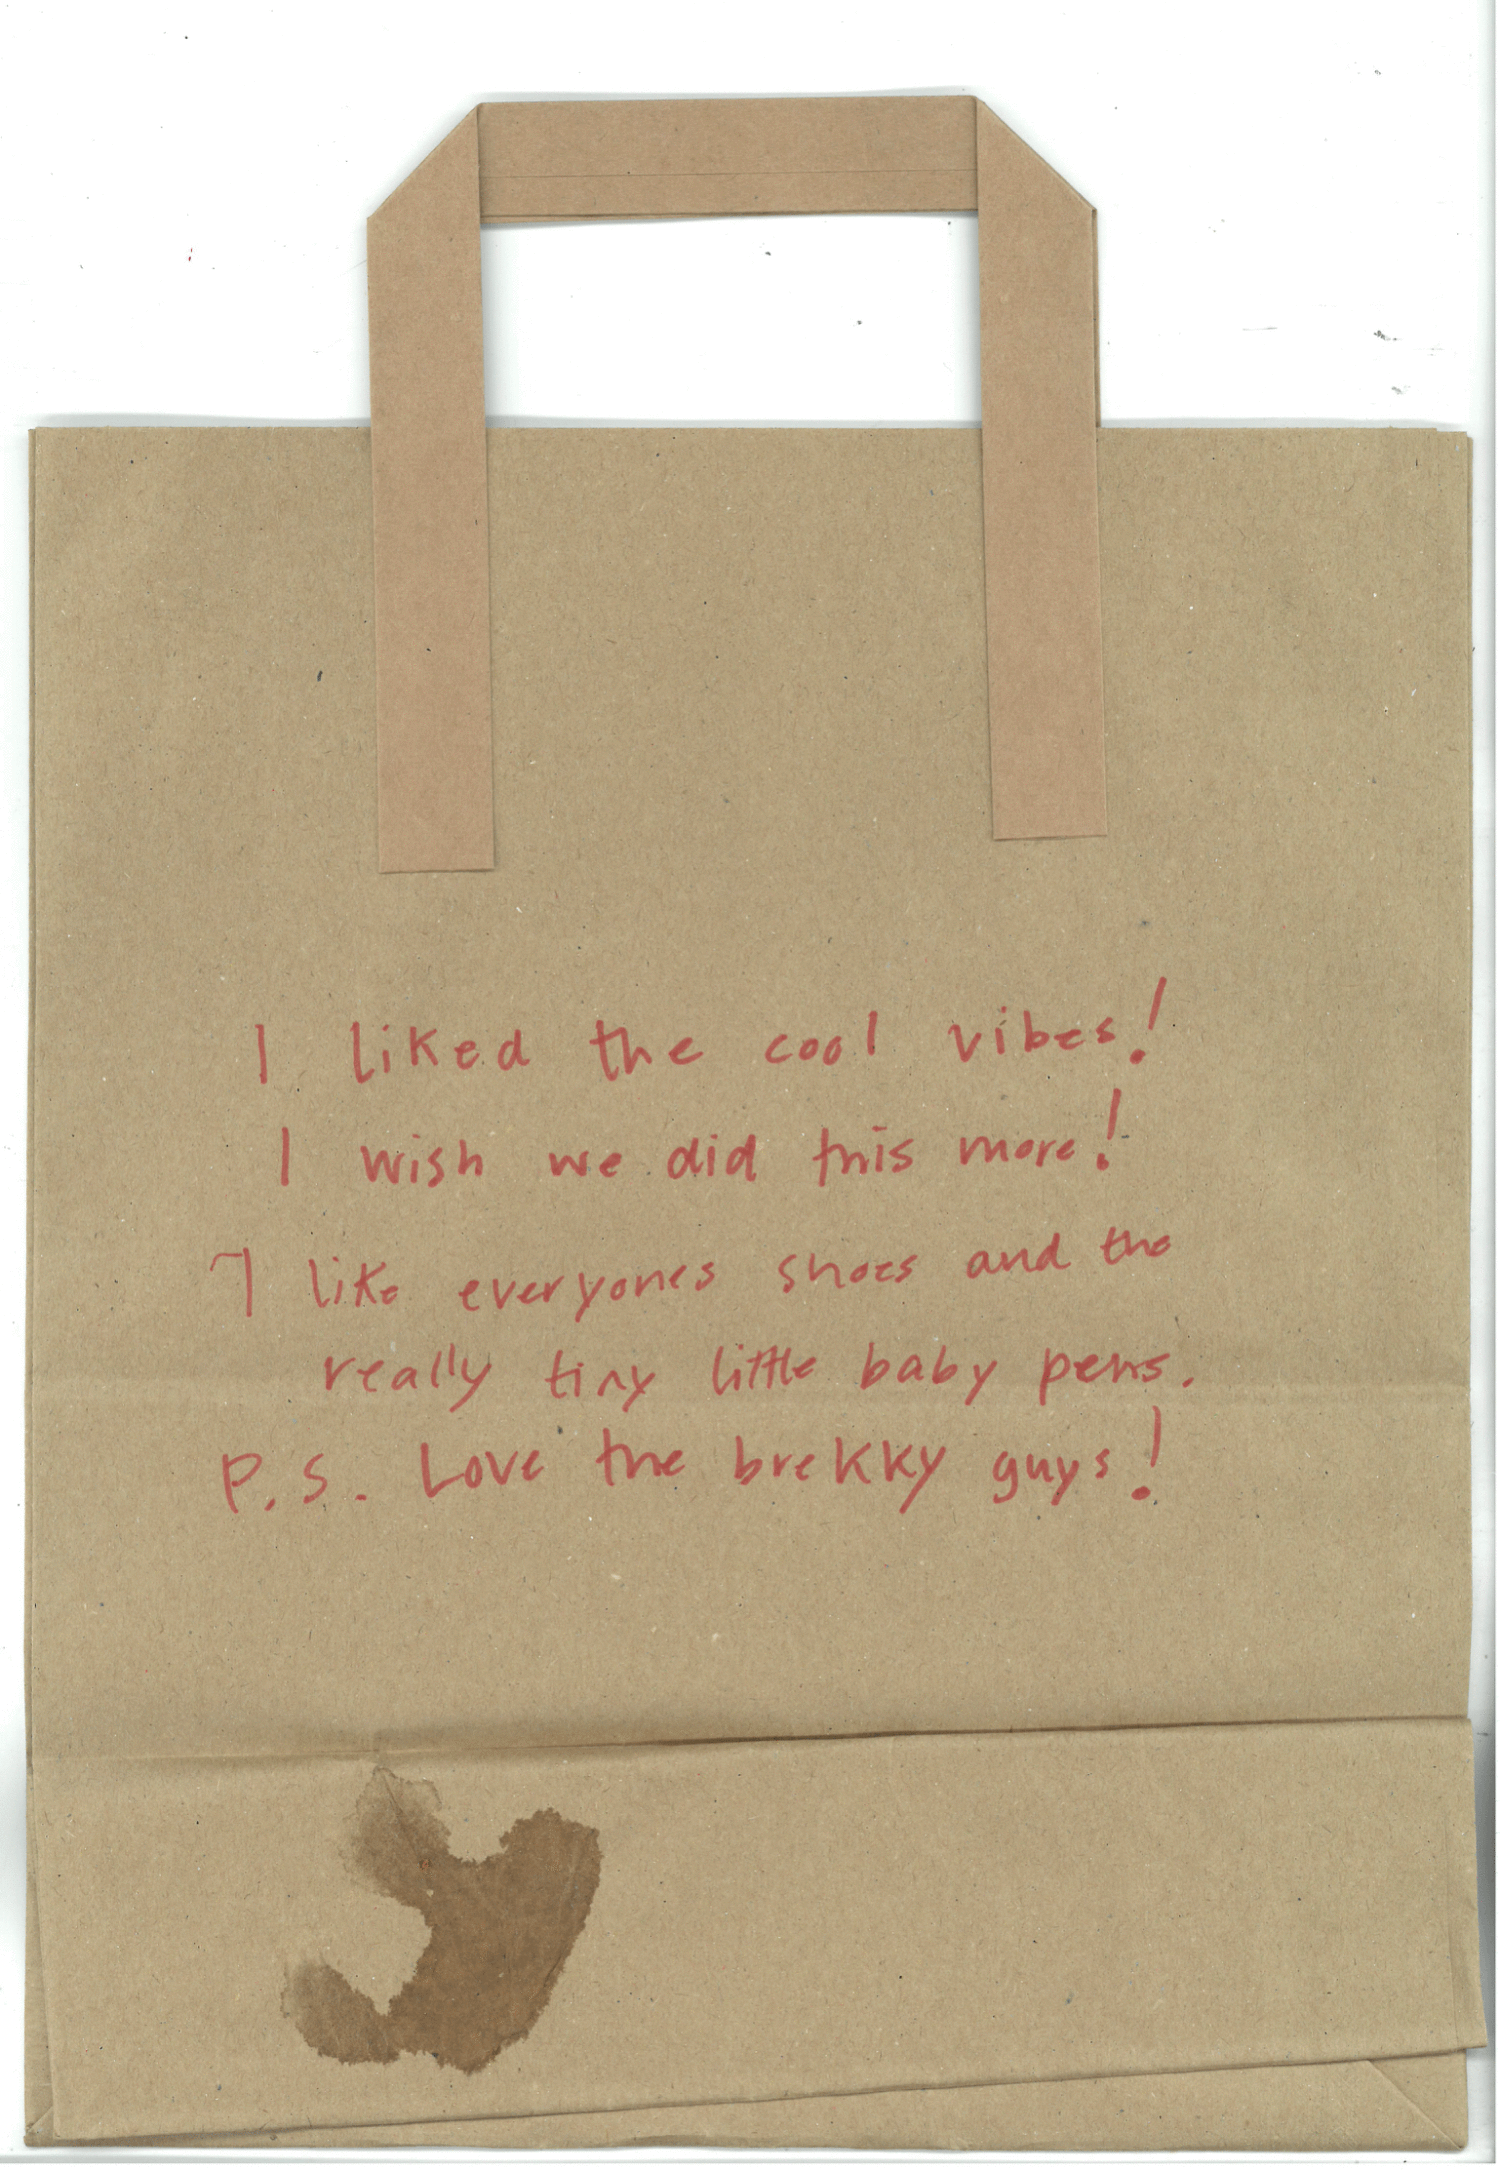 I liked the cool vibes!
I wish we did this more!
I like everyones shoes and the
really tiny little baby pens.
P.S. Love the brekky guys!